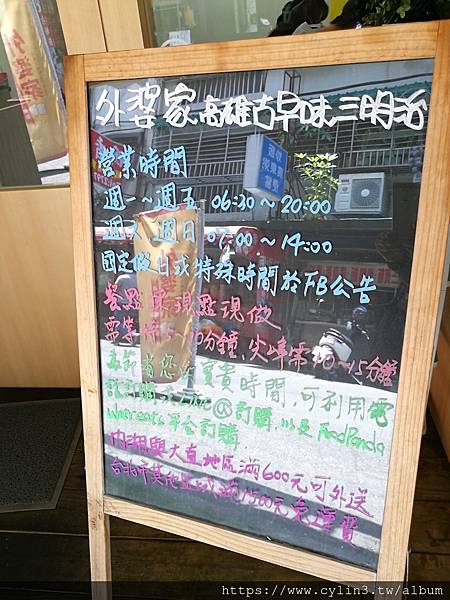 外婆家高雄古早味三明治
營業時間
週一~週五 06:30~20:00
週六、週日 07:00~14:00
國定假日或特殊時間於FB公告
餐點 現點現做
需等 分鐘,尖峰需 10~15分鐘
為節省您 寶貴時間,可利用電
話訂購 Line @訂購,以及 FoodPanda
平台訂購
內湖與大直地區滿600元可外送
台北市其 區 滿1500元免運費
外婆家
https://www.cylin3.tw/album